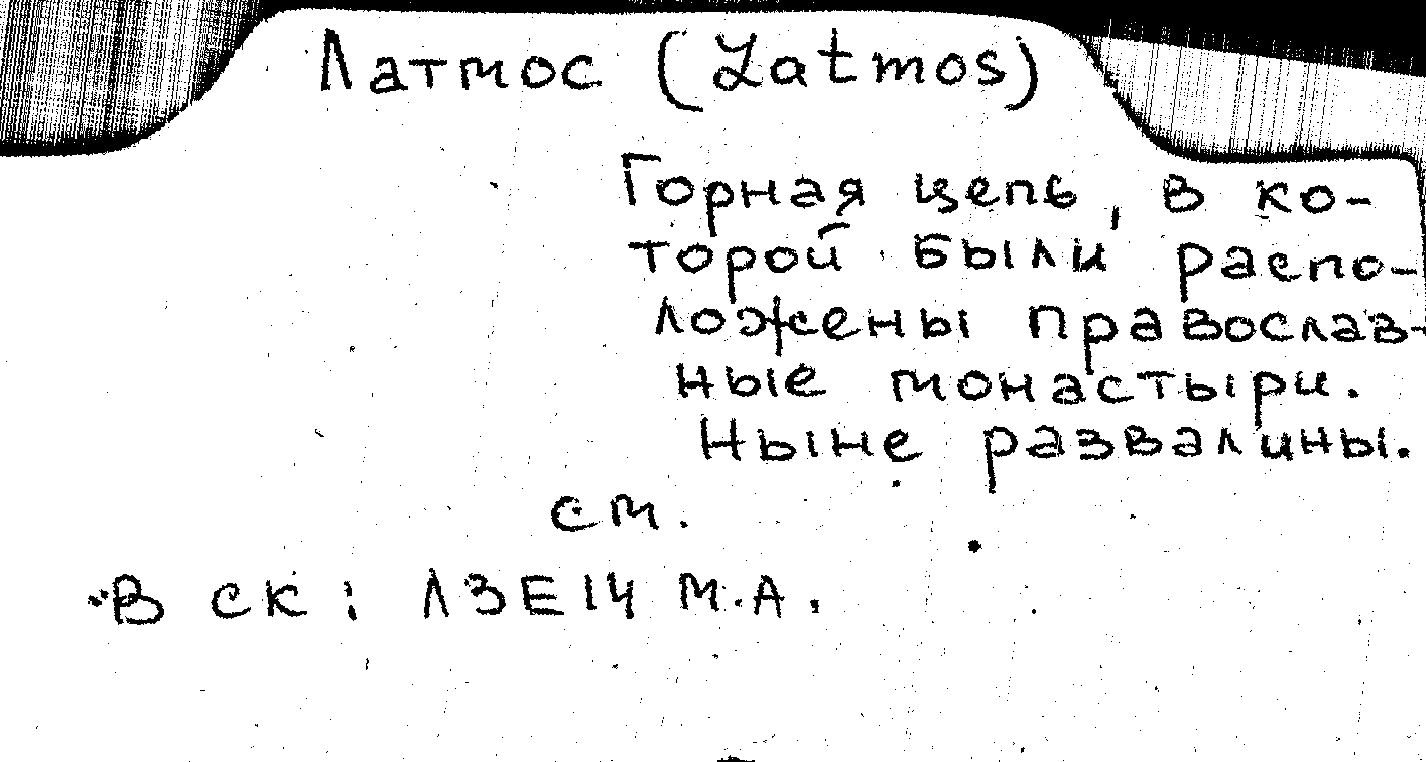 Латмос (Latmos)
Горная цепь, в ко-
торой были распо-
ложены православ-
ные монастыри.
Ныне развалины.
см.
В ск: ЛЗЕ14 М.А.